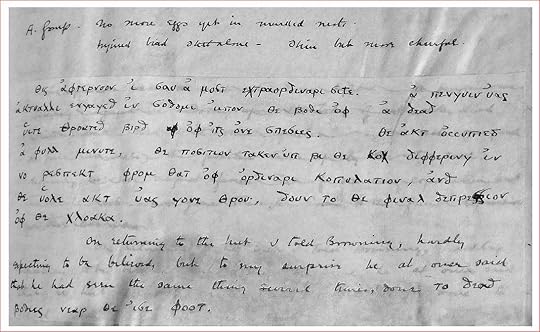 A. Group. No more eggs yet in marked nest.
Injured bird still alone – thin but more cheerful.
θις ἀφτερνοον ἰ σαυ ἀ μοστ εχτραορδιναρι σιτε. ἀ πενγυιν ὐας
ἀκτυαλλι ενγαγεδ ἰν σοδομι ὐπον θε βοδι ὀφ ἀ δεαδ
ὐιτε θροατεδ βιρδ ὀφ ἰτς ὀνε σπεσιες. θε ἀκτ ὀςςυπιεδ
ἀ φυλλ μινυτε, θε ποσιτιον τακεν ὐπ βι θε κοκ διφφερινγ ἰν
νο ρεσπεκτ φρομ θατ ὀφ ὀρδιναρι κοπυλατιον, ἀνδ
θε ὑολε ἀκτ ὐας γονε θρου, δουν το θε φιναλ δεπρεσσιον
ὀφ θε χλοακα.
On returning to the hut I told Browning, hardly
expecting to be believed, but to my surprise he at once said
that he had seen the same thing several times, done to dead
βοδιες νεαρ θε ἰσε φοοτ.